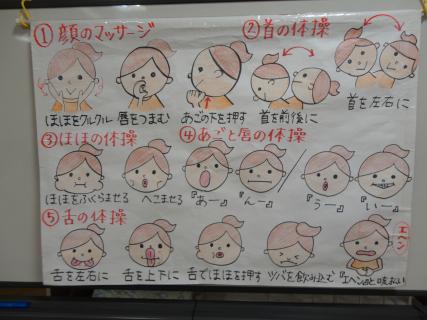 ①顔のマッサージ
ほほをクルクル
唇をつまむ
あごの下を押す
②首の体操
首を前後に
首を左右に
③ほほの体操
ほほをふくらませる
へこませる
④あごと唇の体操
『あー』
『んー』
『うー』
『いー』
⑤舌の体操
舌を左右に
舌を上下に
舌でほほを押す
ツバを飲み込む
エヘン
『エヘン』と咳払い